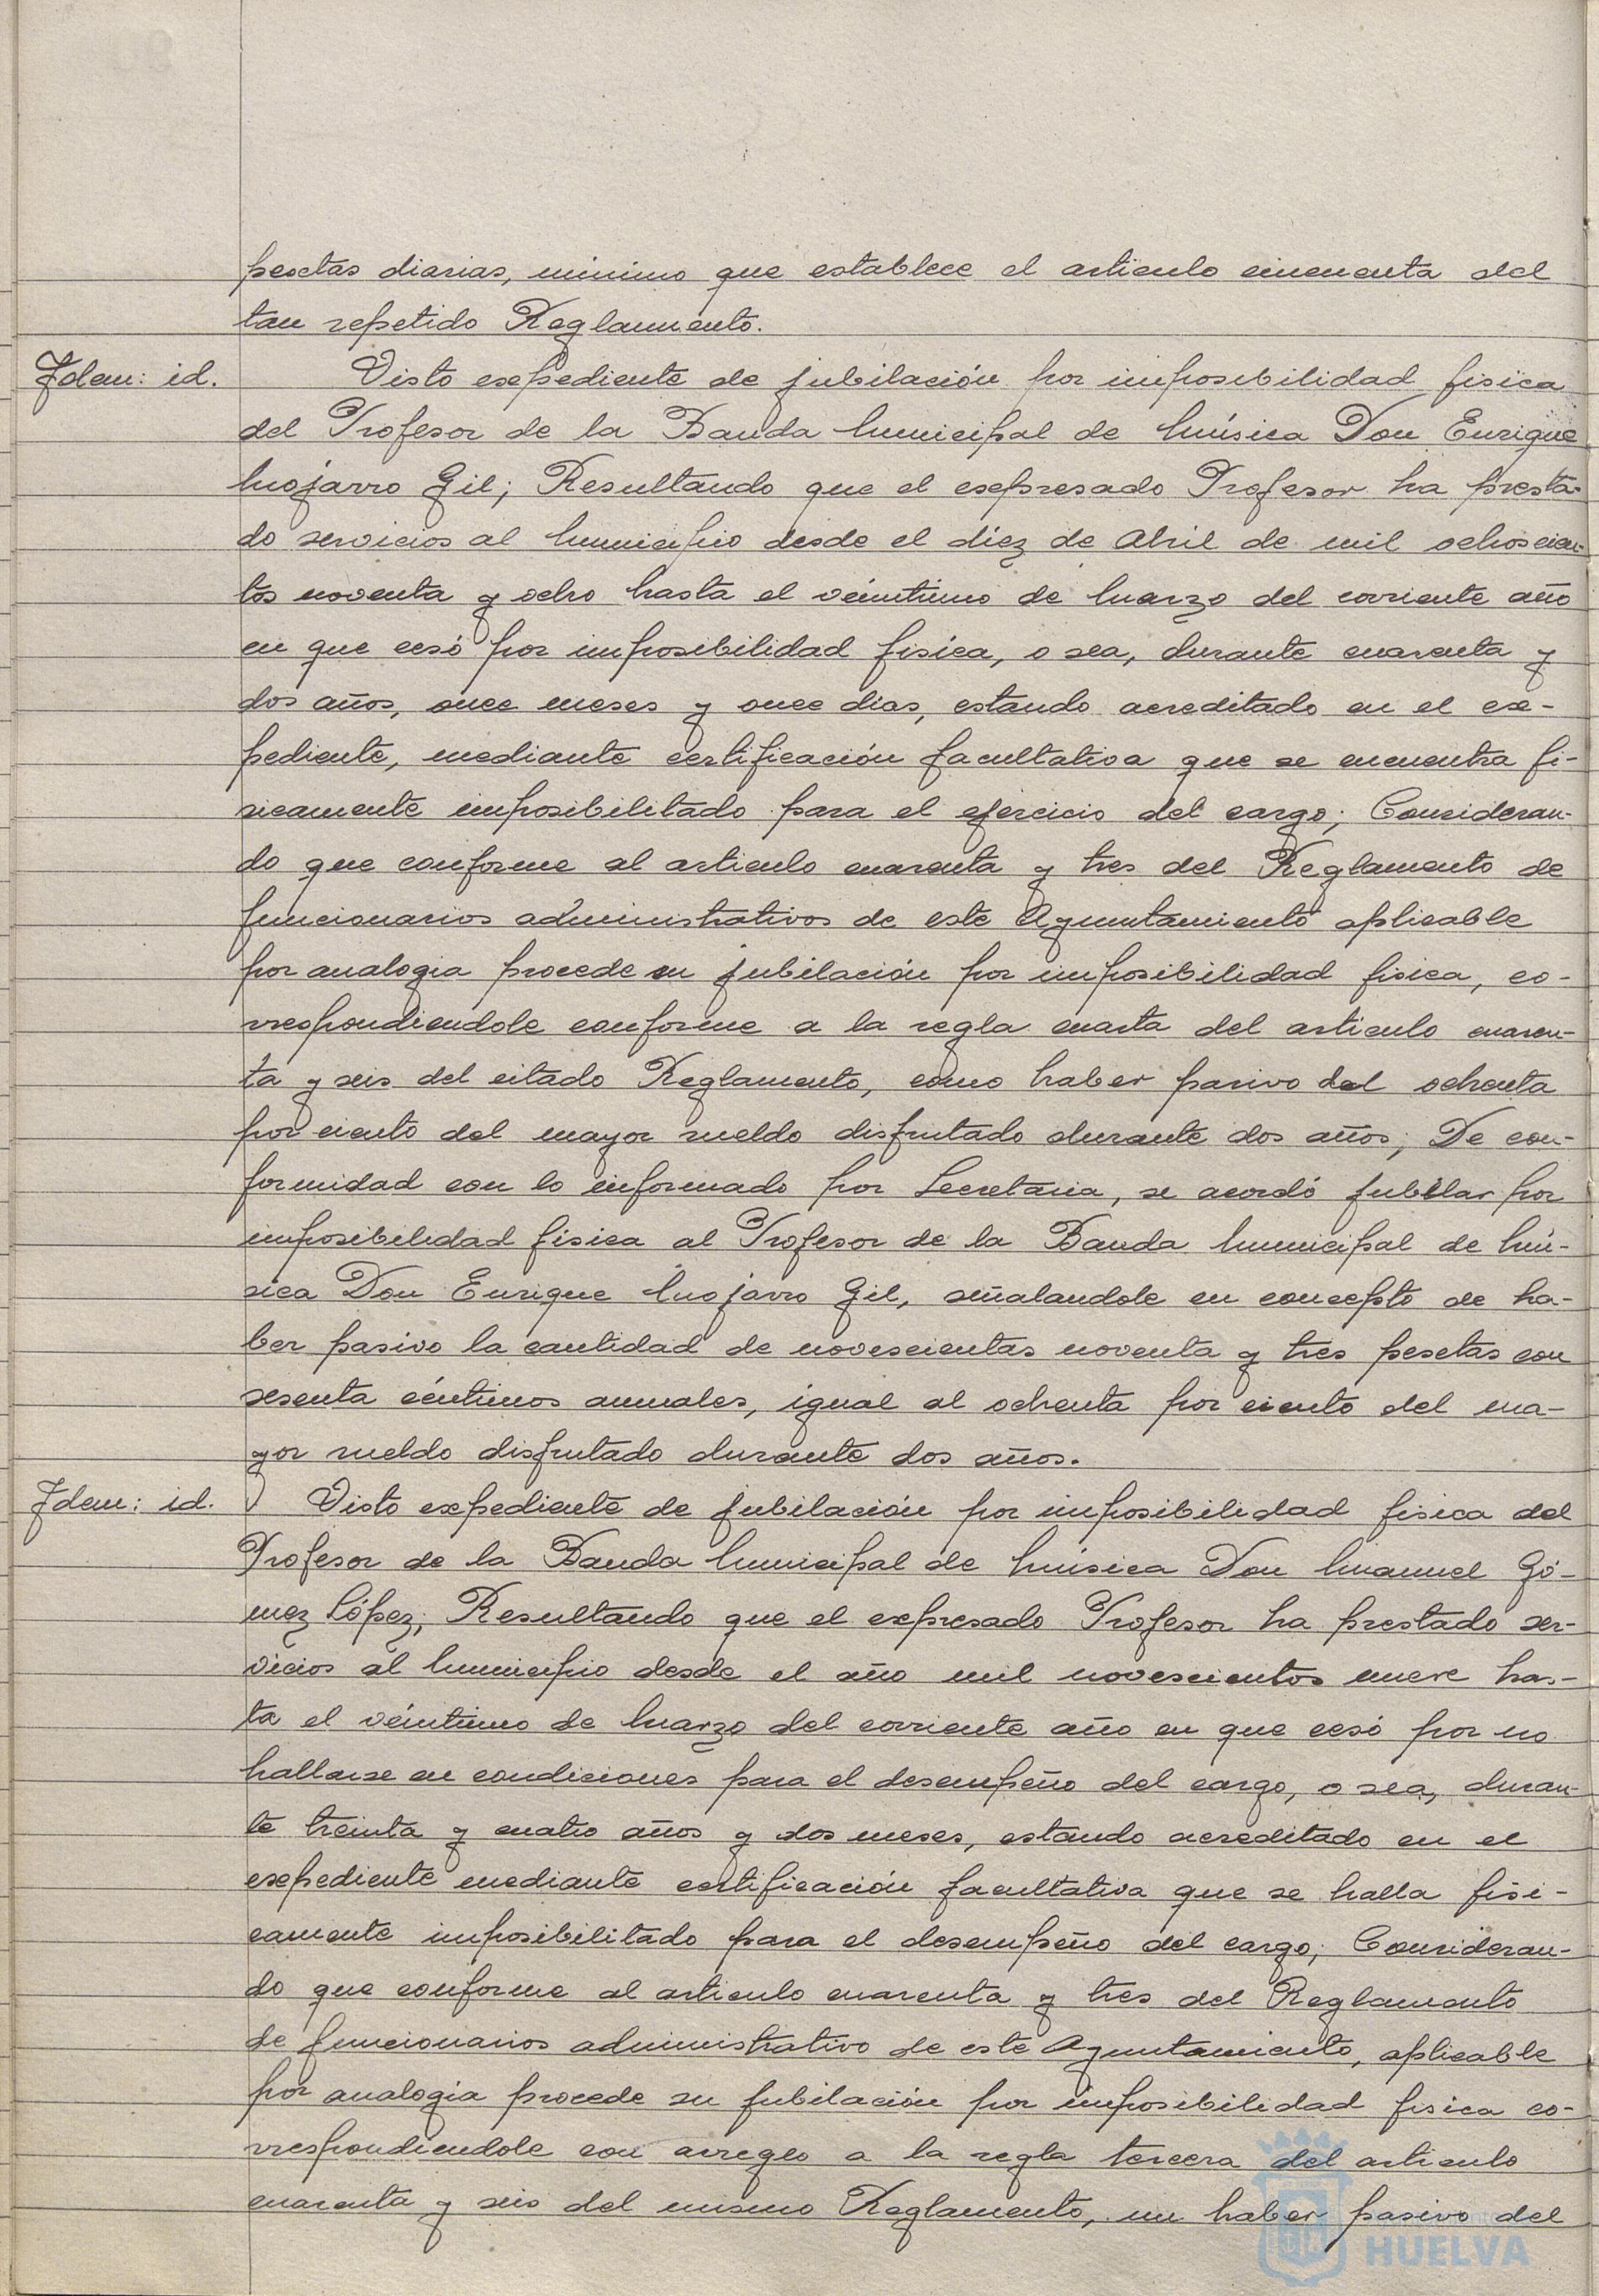 pesetas diarias, minimo que establece el articulo cincuenta del
tan repetido Reglamento.
Idem: id. Visto expediente de jubilación por imposibilidad fisica
del Profesor de la Banda Municipal de Música Don Enrique
Mojarro Gil; Resultando que el expresado Profesor ha presta-
do servicios al Municipio desde el diez de Abril de mil ochoscien-
tos noventa y ocho hasta el veintiuno de Marzo del corriente año
en que cesó por imposibilidad fisica, o sea, durante cuarenta y
dos años, once meses y once dias, estando acreditado en el ex-
pediente, mediante certificación facultativa que se encuentra fi-
sicamente imposibilitado para el ejercicio del cargo; Consideran-
do que conforme al articulo cuarenta y tres del Reglamento de
funcionarios administrativos de este Ayuntamiento aplicable
por analogia procede su jubilación por imposibilidad fisica, co-
rrespondiendole conforme a la regla cuarta del articulo cuaren-
ta y seis del citado Reglamento, como haber pasivo del ochenta
por ciento del mayor sueldo disfrutado durante dos años; De con-
formidad con lo informado por Secretaria, se acordó jubilar por
imposibilidad fisica al Profesor de la Banda Municipal de Mú-
sica Don Enrique Mojarro Gil, señalandole en concepto de ha-
ber pasivo la cantidad de novescientas noventa y tres pesetas con
sesenta céntimos anuales, igual al ochenta por ciento del ma-
yor sueldo disfrutado durante dos años.
Idem: id. Visto expediente de jubilación por imposibilidad fisica del
Profesor de la Banda Municipal de Música Don Manuel Gó-
mez López; Resultando que el expresado Profesor ha prestado ser-
vicios al Municipio desde el año mil novescientos nueve has-
ta el veintiuno de Marzo del corriente año en que cesó por no
hallarse en condiciones para el desempeño del cargo, o sea, duran-
te treinta y cuatro años y dos meses, estando acreditado en el
expediente mediante certificación facultativa que se halla fisi-
camente imposibilitado para el desempeño del cargo; Consideran-
do que conforme al articulo cuarenta y tres del Reglamento
de funcionarios administrativo de este Ayuntamiento, aplicable
por analogia procede su jubilación por imposibilidad fisica co-
rrespondiendole con arreglo a la regla tercera del articulo
cuarenta y seis del mismo Reglamento, un haber pasivo del
HUELVA